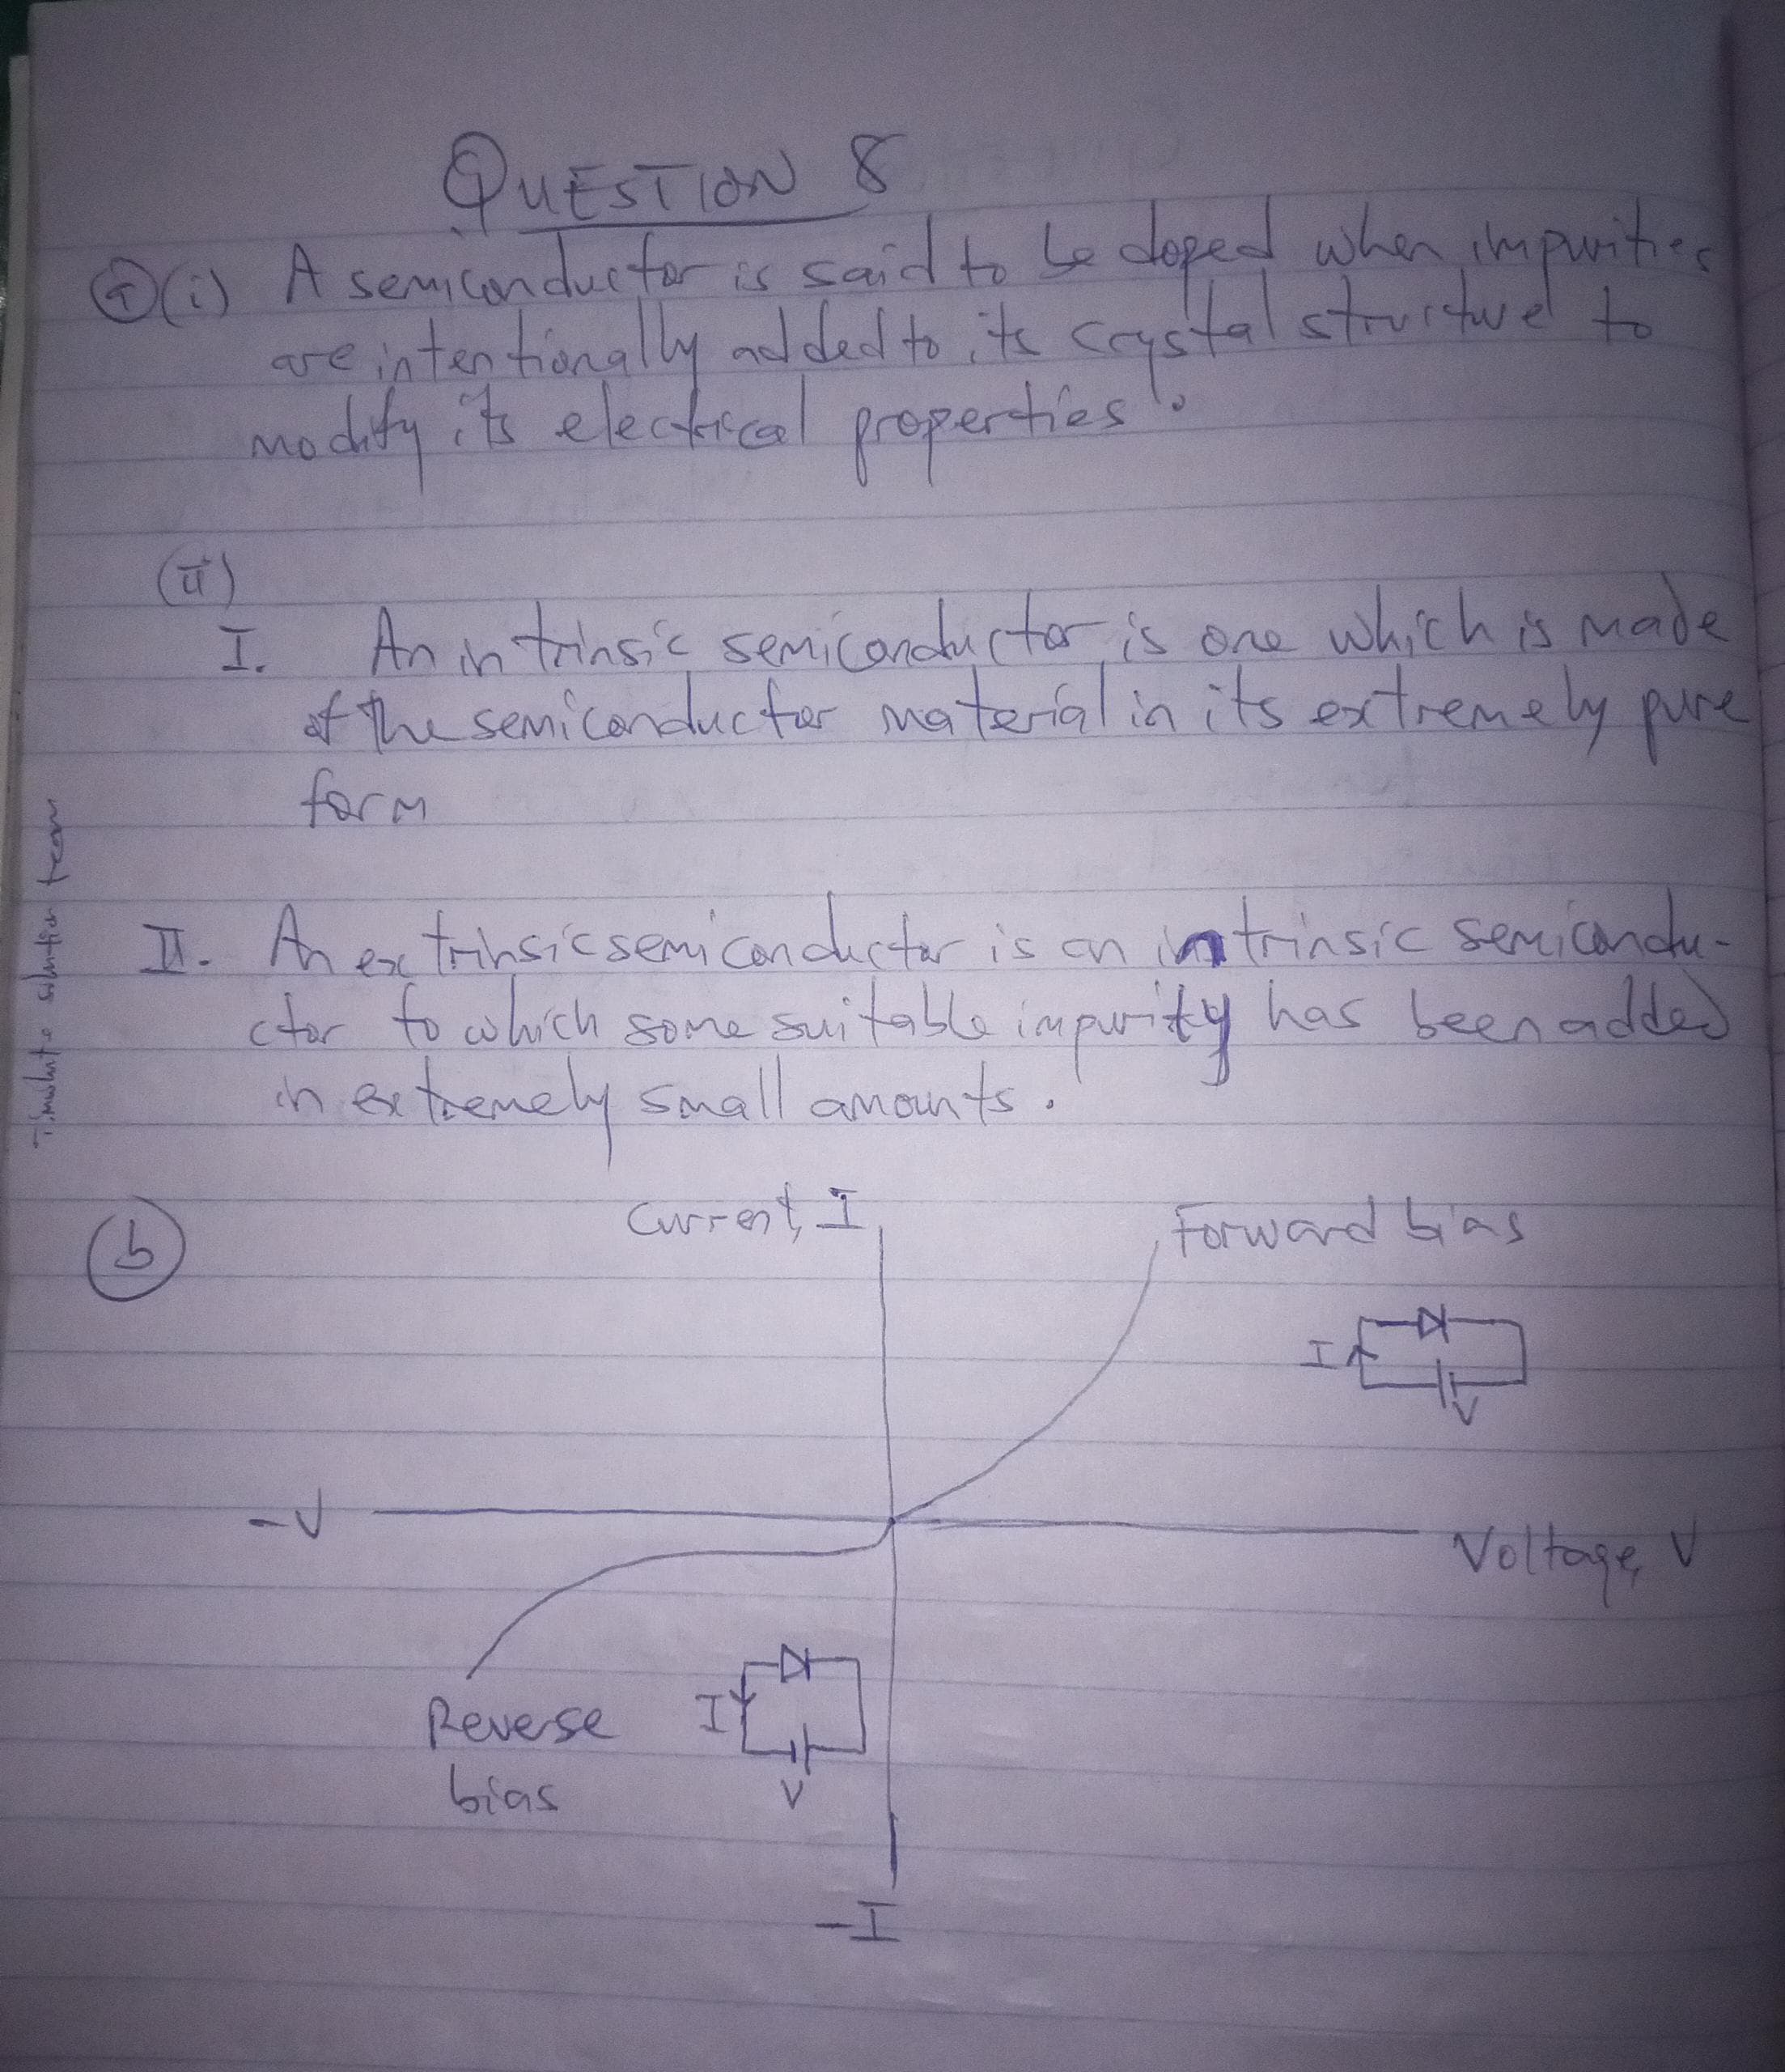 QUESTION 8
a (i) A semiconductor is said to be doped when impurities
are intentionally added to its crystal structure to
modify its electrical properties.
(ii)
I. An intrinsic semiconductor is one which is made
of the semiconductor material in its extremely pure
form
II. An extrinsic semiconductor is an intrinsic semicondu-
ctor to which some suitable impurity has been added
in extremely small amounts.
solution team
b
Current, I
Forward bias
I
V
-V
Voltage, V
Reverse
bias
I
V
-I